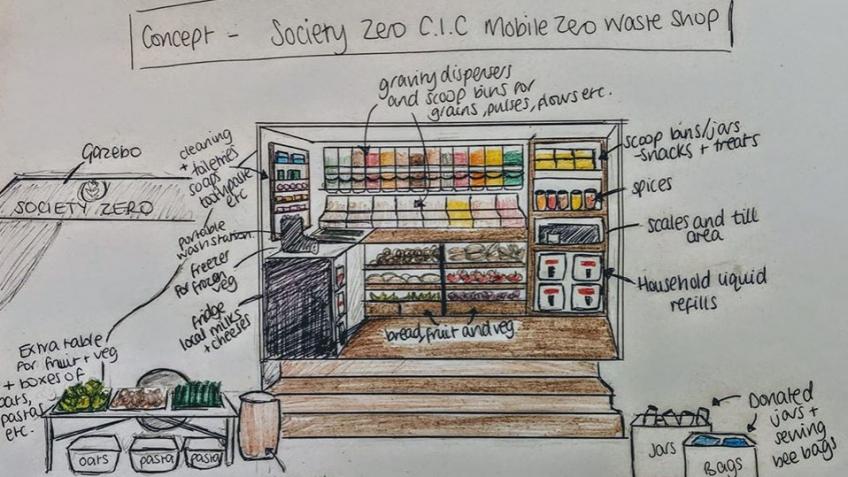 Concept - Society Zero C.I.C Mobile Zero Waste Shop
gravity dispensers
and scoop bins for
grains, pulses, flours etc.
Gazebo
SOCIETY ZERO
cleaning
+ toiletries
soaps
toothpaste
etc
portable
wash station
freezer
for frozen
veg
fridge
local milks
+ cheeses
scoop bins/jars
- snacks + treats
spices
scales and till
area
Household liquid
refills
bread, fruit and veg
Extra table
for fruit + veg
+ boxes of
oats,
pastas
etc.
oats
pasta
pasta
Donated
jars +
sewing
bee bags
Jars
Bags